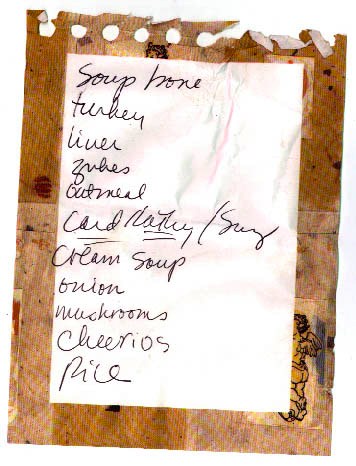 Soup bone
turkey
liver
zukes
oatmeal
Card Kathy / Suzy
Cream Soup
onion
mushrooms
Cheerios
Rice